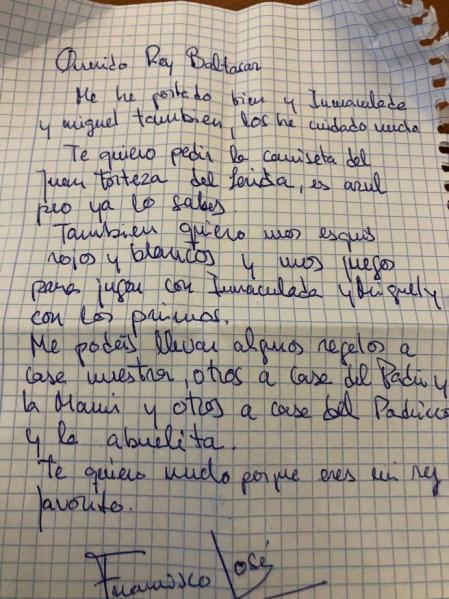 Querido Rey Baltasar
Me he portado bien y Inmaculada
y miguel tambien, los he cuidado mucho
Te quiero pedir la camiseta del
Juan Torteza del Lerida, es azul
pero ya lo sabes.
Tambien quiero unos esquis
rojos y blancos y unos juegos
para jugar con Inmaculada y Miguel y
con los primos.
Me podeis llevar algunos regalos a
casa nuestra, otros a casa del Padrí y
la Mami y otros a casa del
y la abuelita.
Te quiero mucho porque eres mi rey
favorito.
Francisco José